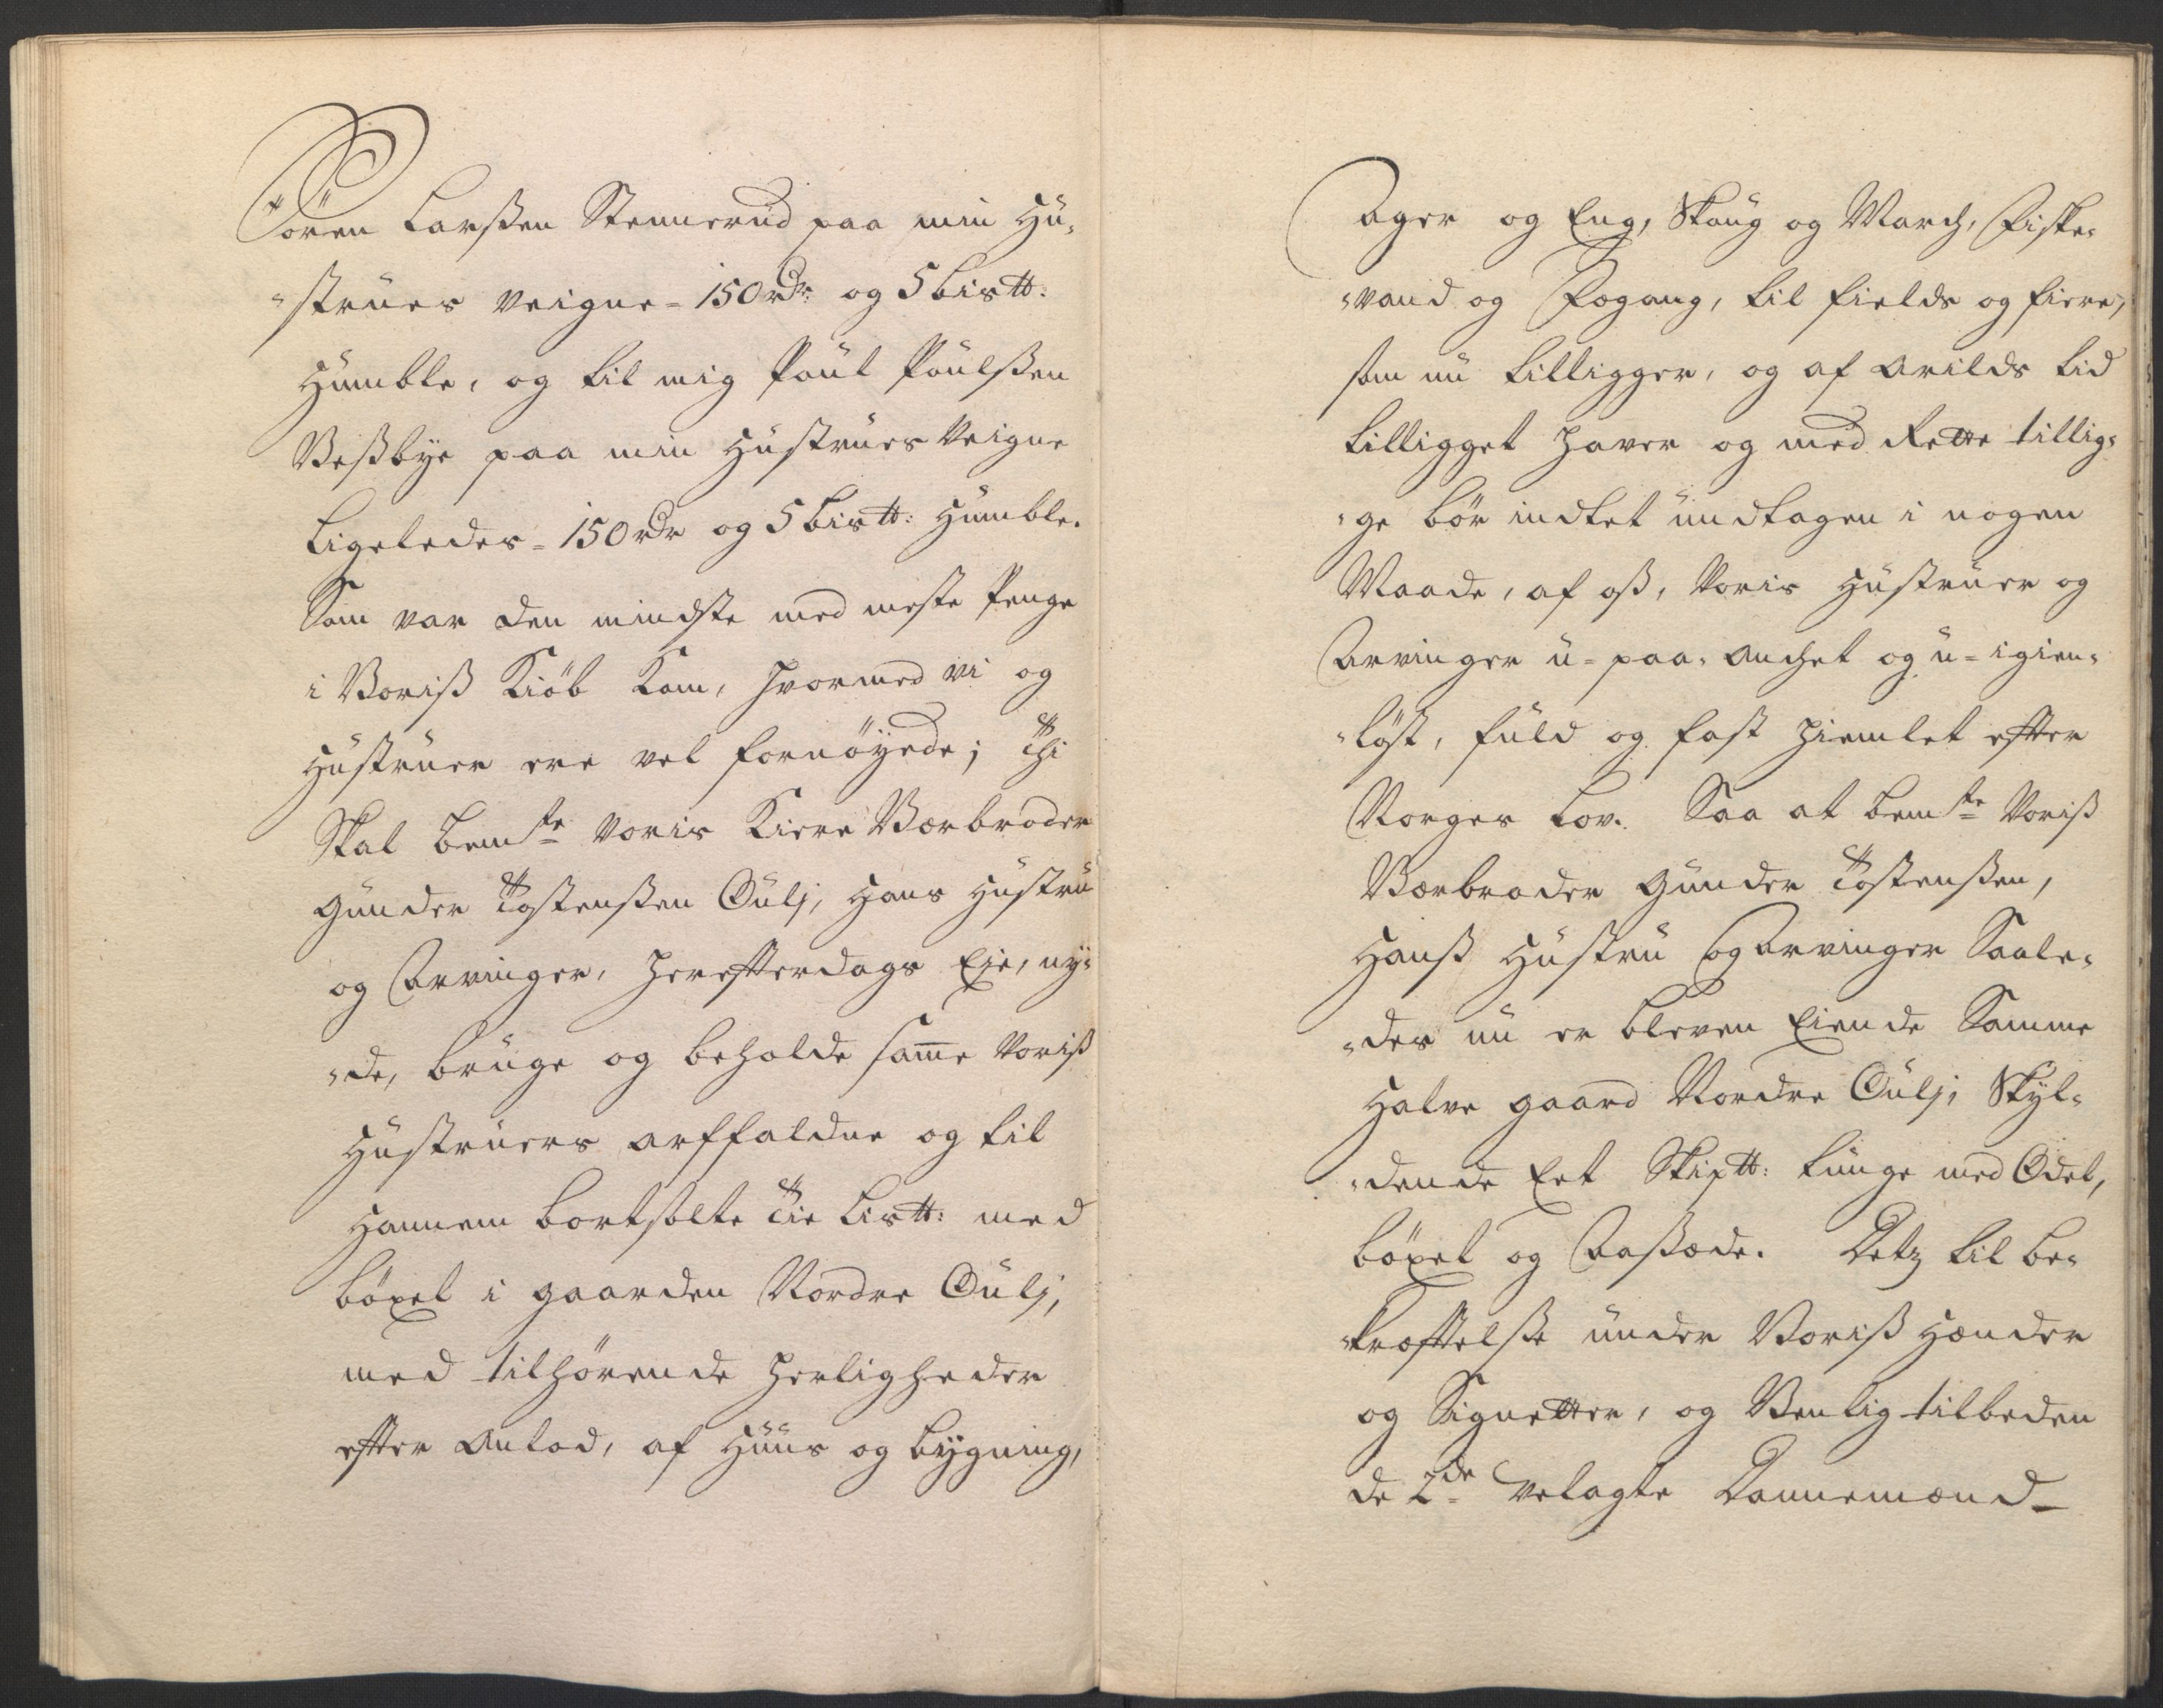 Sören Larßen Stennerud paa min Hu-
"strues veigne = 150 rdr. og 5 bis℔:
Humble, og til mig Poul Poulßen
Veßbye paa min Hustrues Veigne
Ligeledes = 150 rdr og 5 bis℔: Humble.
Som var den mindste med meste Penge
i Voriß Kiöb kom, hvormed vi og
Hustruer ere vel fornöyede; Thi
Skal bem.te Voris Kiere Værbroder
Gunder Tostenßen Gulj, Hans Hustru
og Arvinger, herefterdags Eje, ny-
"de, bruge og beholde samme Voriß
Hustruers arffaldne og til
Hannem bortsolte Tie Lis℔: med
böxel i gaarden Nordre Gulj,
med tilhörende Herligheder
efter Anlod, af Huus og bygning,
Ager og Eng, Skoug og March, Fiske-
"vand og Fægang, til Fields og Fiere,
som nu tilligger, og af Arilds tid
tilligget haver og med Rette tillig-
"ge bör indtet undtagen i nogen
Maade, af oß, Voris Hustruer og
Arvinger u-paa-anchet og u-igien-
"löst, fuld og fast hiemlet efter
Norges Lov. Saa at bem.te Voriß
Værbroder Gunder Tostenßen,
Hanß Hustru og Arvinger Saale-
"des nu er bleven Eiende Samme
Halve gaard Nordre Gulj, Skyl-
"dende Eet Skip℔: tunge med Odel,
böxel og Aaßæde. Detz til be-
"kræftelße under Voriß Hænder
og Signetter, og Venlig tilbeden
de 2de velagte Dannemænd